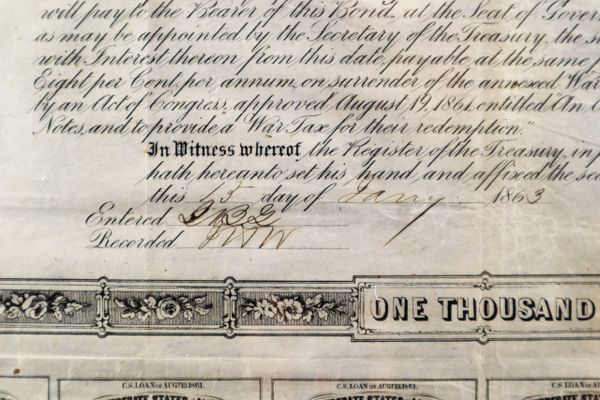 will pay to the Bearer of this Bond, at the Seat of Govern
as may be appointed by the Secretary of the Treasury, the s
with Interest thereon from this date, payable at the same p
Eight per Cent, per annum, on surrender of the annexed War
by an Act of Congress, approved August 19, 1861, entitled An A
Notes, and to provide a War Tax for their redemption."
In Witness whereof the Register of the Treasury, in p
hath hereunto set his hand and affixed the sea
this 15 day of Jany 1863
Entered
Recorded
ONE THOUSAND
C.S. LOAN OF AUG 19, 1861. C.S. LOAN OF AUG 19, 1861. C.S. LOAN OF AUG 19, 1861.